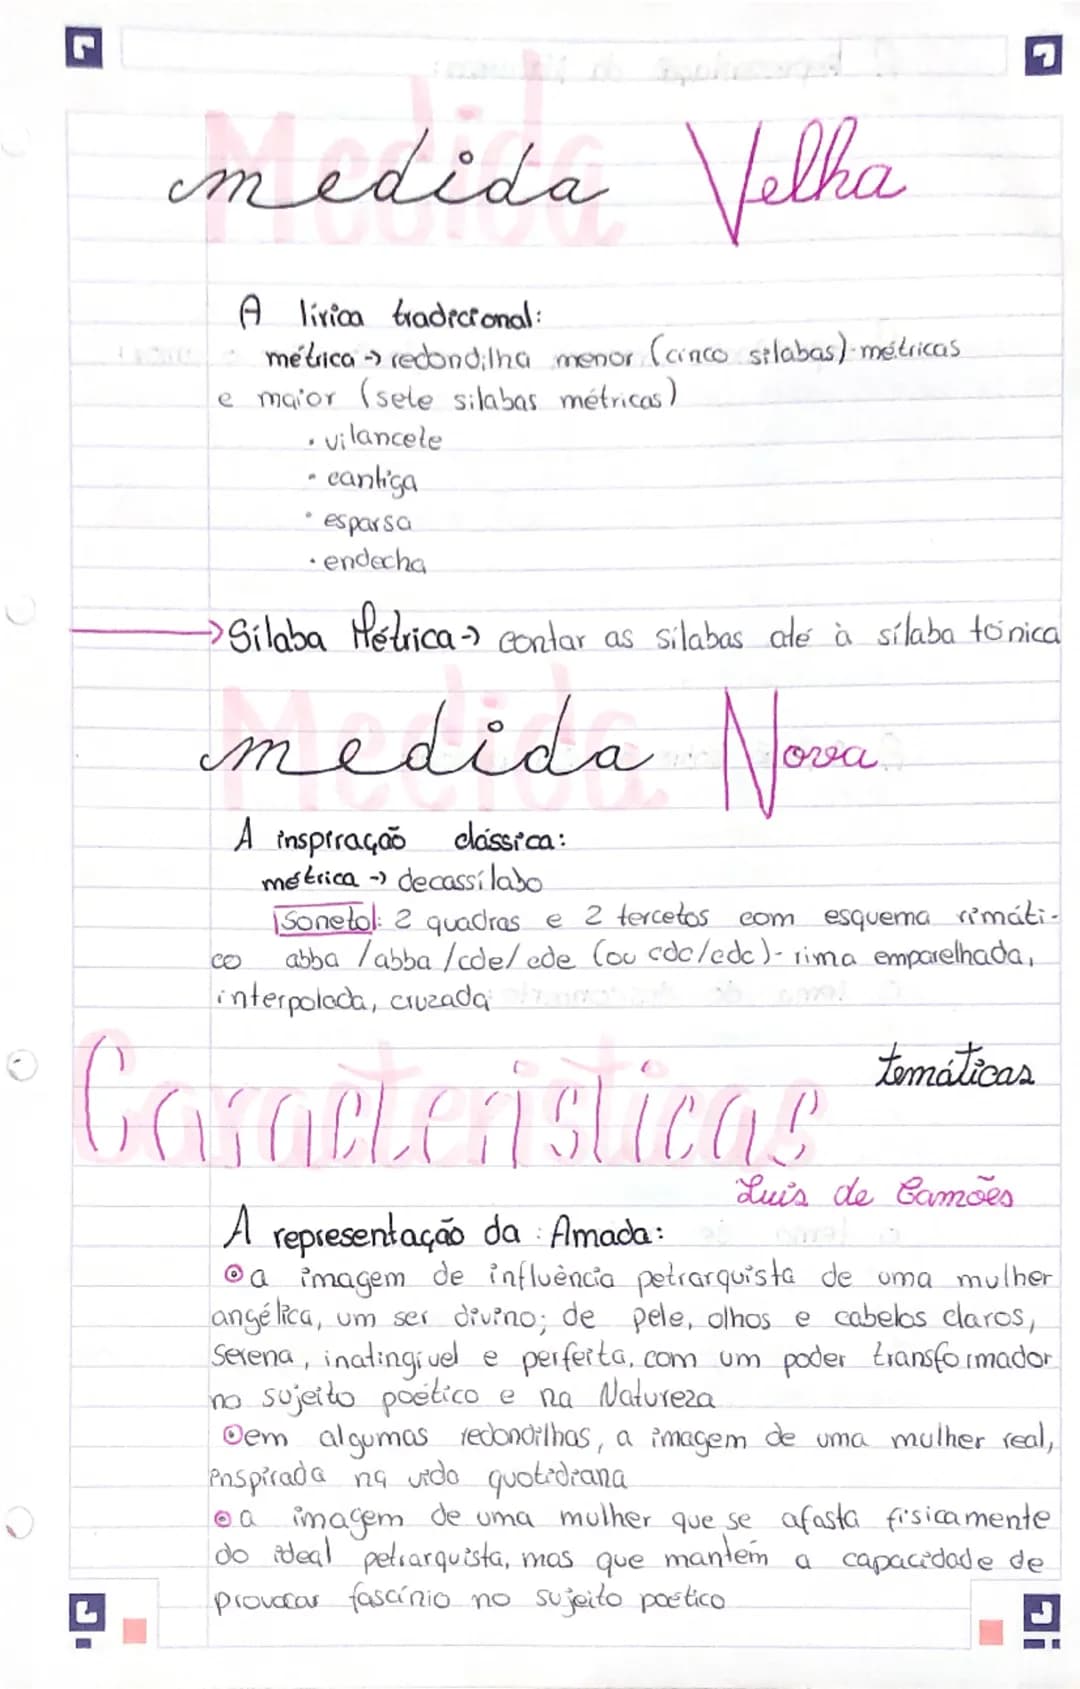 medida Velha
A lírica tradicional:
métrica -> redondilha menor (cinco sílabas)-métricas
e maior (sete silabas métricas)
• vilancete
• cantiga
• esparsa
• endecha
Sílaba Métrica -> contar as sílabas até à sílaba tónica
medida Nova
A inspiração clássica:
métrica -> decassílabo
Soneto: 2 quadras e 2 tercetos com esquema rimáti-
co abba /abba /cde/ cde (ou cdc/cdc)- rima emparelhada,
interpolada, cruzada
Características temáticas
Luís de Camões
A representação da Amada:
a imagem de influência petrarquista de uma mulher
angélica, um ser divino; de pele, olhos e cabelos claros,
serena, inatingível e perfeita, com um poder transformador
no sujeito poético e na Natureza
em algumas redondilhas, a imagem de uma mulher real,
inspirada na vida quotidiana
a imagem de uma mulher que se afasta fisicamente
do ideal petrarquista, mas que mantém a capacidade de
provocar fascínio no sujeito poético